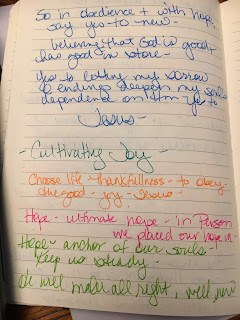 So in obedience + with hope,
say yes to new -
believing that God is good +
has good in store -
Yes to letting my sorrow
& endings deepen my soul's
dependence on Him yes to
Jesus -
- Cultivating Joy -
Choose life - thankfullness - to obey
the good - joy - Jesus -
Hope - ultimate hope - in Person
we placed our hope in
Hope - anchor of our souls -
keep us steady -
He will make all right, well, new